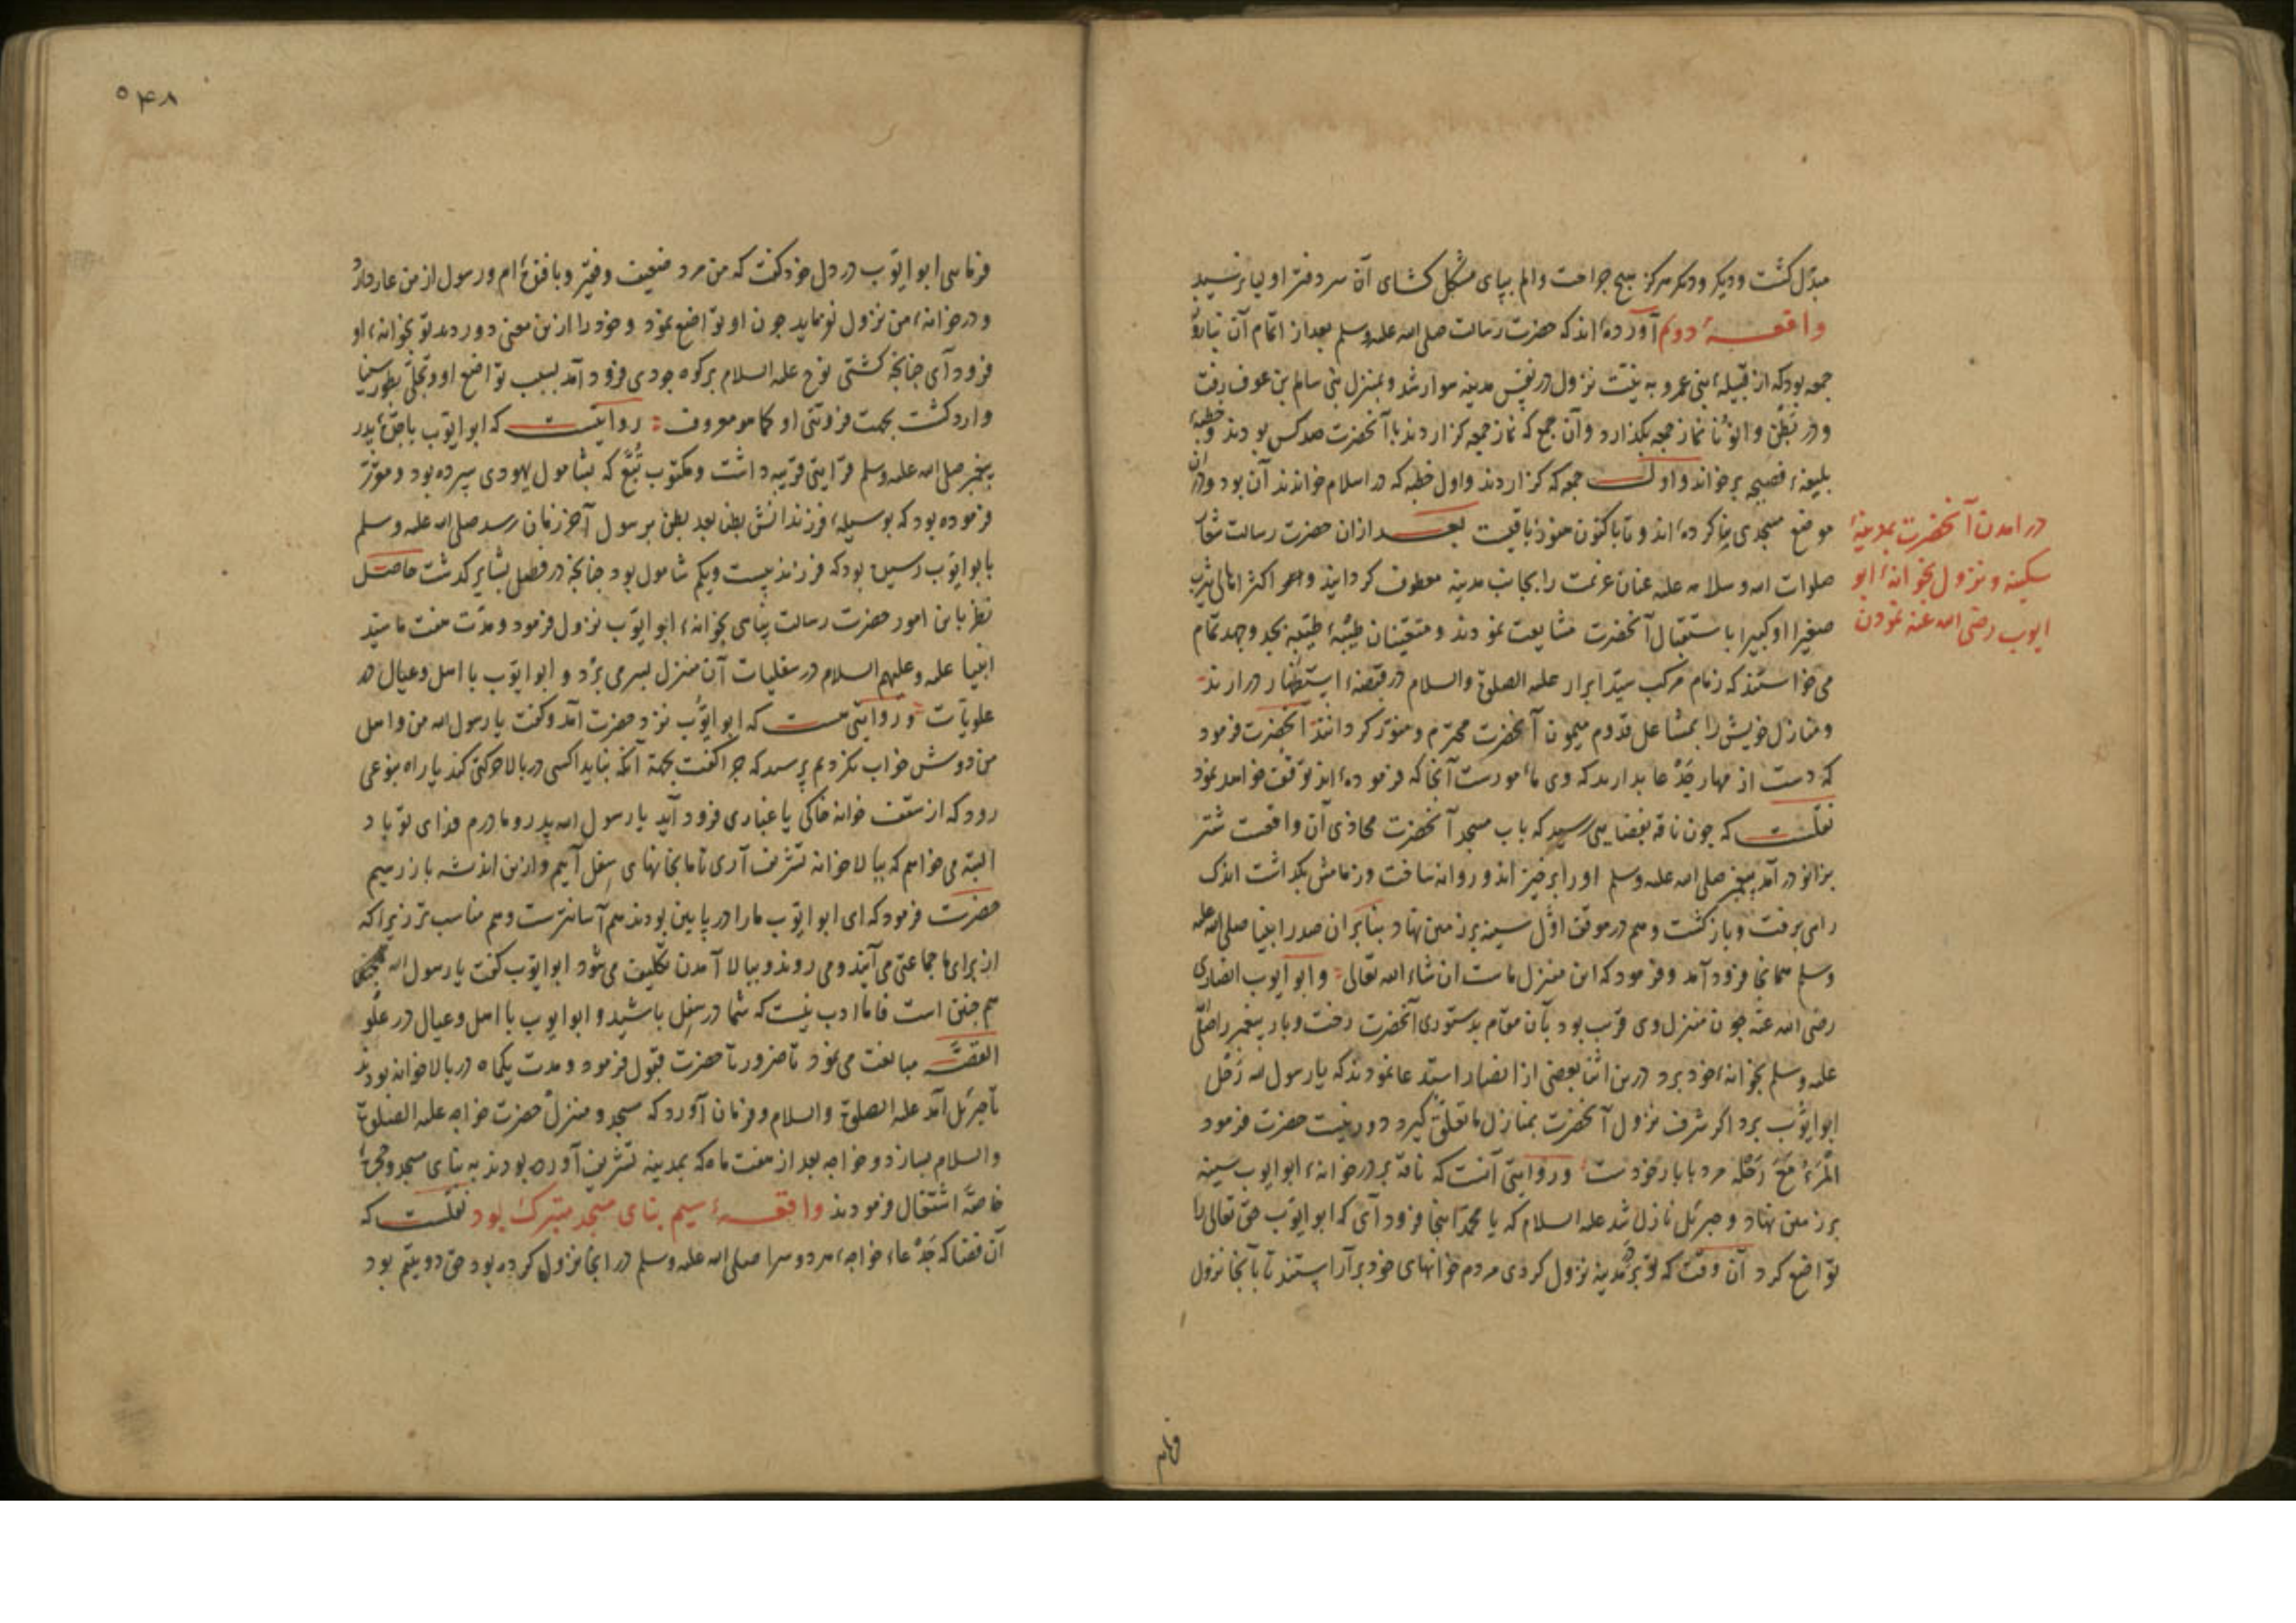 مبدّل گشت و دیگر هرگز هیچ جراحت و الم بپای مشکل کشای آن سر دفتر اولیا نرسید
واقعهٔ دوم آورده‌اند که حضرت رسالت صلی الله علیه وسلم بعد از اتمام آن
جمعه بود که از قبیلهٔ بنی عمرو به نیت نزول در نفس مدینه سوار شد و بمنزل بنی سالم بن عوف رفت
و در بطن وانونا نماز جمعه بگذارد و آن جمع که نماز جمعه گزاردند با آنحضرت صد کس بودند و خطبهٔ
بلیغهٔ فصیحه برخواند و اول جمعه که گزاردند و اول خطبه که در اسلام خواندند آن بود و در آن
موضع مسجدی بنا کرده‌اند و تا باکنون هنوز باقیست بعد ازان حضرت رسالت
صلوات الله وسلامه علیه عنان عزیمت را بجانب مدینه معطوف گردانید و اکثر اهالی یثرب
صغیرا او کبیرا باستقبال آنحضرت مشایعت نمودند و متعینان طیبهٔ طیّبه بجد و جهد تمام
می خواستند که زمام مرکب سید ابرار علیه الصلوة والسلام در قبضهٔ استظهار در ارند
و منازل خویش را بمشاعل قدوم میمون آنحضرت محترم و منوّر گردانند آنحضرت فرمود
که دست از مهار جَدْعا بدارید که وی مأمورست آنجا که فرموده‌اند توقف خواهد نمود
نقلست که چون ناقه بفضایی رسید که باب مسجد آنحضرت محاذی آن واقعست شتر
بزانو در آمد پیغمبر صلی الله علیه وسلم او را برخیزاند و روانه ساخت و زمامش بگذاشت اندک
راهی برفت و باز گشت و هم در موقف اوّل سینه بر زمین نهاد بنابران صدر انبیا صلی الله علیه
وسلم همانجا فرود آمد و فرمود که این منزل ماست ان شاء الله تعالی و ابو ایوب انصاری
رضی الله عنه چون منزل وی قریب بود بآن مقام بدستوری آنحضرت رخت و بار پیغمبر را صلّی
علیه وسلم بخوانهٔ خود برد درین اثنا بعضی از انصار استدعا نمودند که یا رسول الله رَحْل
ابو ایّوب برد اگر شرف نزول آنحضرت بمنازل ما تعلّق گیرد دور نیست حضرت فرمود
المَرْءُ مَعَ رَحْلِه مرد با بار خودست و روایتی آنست که ناقه بر در خوانهٔ ابو ایوب سینه
بر زمین نهاد و جبرئیل نازل شد علیه السلام که یا محمّد اینجا فرود آی که ابو ایّوب حق تعالی را
تواضع کرد آن وقت که تو بر مدینه نزول کردی مردم خوانهای خود بر آراستند تا بآنجا نزول
در امدن آنحضرت بمدینهٔ
سکینه و نزول بخوانهٔ ابو
ایوب رضی الله عنه نمودن
۵۴۸
فرمایی ابو ایّوب در دل خود گفت که من مرد ضعیف و فقیر و بافنده‌ام و رسول از من عار دارد
و در خوانهٔ من نزول نفرماید چون او تواضع نمود و خود را ازین معنی دور دید تو بخوانهٔ او
فرود آی چنانچه کشتی نوح علیه السلام بر کوه جودی فرود آمد بسبب تواضع او و تجلّی بطور سینا
وارد گشت بجهت فروتنی او کما هو معروف روایتست که ابو ایّوب باجدّهٔ پدر
پیغمبر صلی الله علیه وسلم قرابتی قریبه داشت و مکتوب تُبَّع که بشامول یهودی سپرده بود و مقرّر
فرموده بود که بوسیلهٔ فرزندانش بطن بعد بطن برسول آخر زمان رسد صلی الله علیه وسلم
بابو ایّوب رسیده بود که فرزند بیست و یکم شامول بود چنانچه در فصل بشایر گذشت حاصل
نظر باین امور حضرت رسالت پناهی بخوانهٔ ابو ایّوب نزول فرمود و مدّت هفت ماه سیّد
انبیا علیه وعلیهم السلام در سفلیات آن منزل بسر می برد و ابو ایّوب با اهل و عیال در
علویات و روایتی هست که ابو ایّوب نزد حضرت آمد و گفت یا رسول الله من و اهل
من دوش خواب نکردیم پرسید که چرا گفت بجهة آنکه نباید اکسی در بالا حرکتی کند یا راه بنوعی
رود که از سقف خوانه خاکی یا غباری فرود آید یا رسول الله پدر و مادرم فدای تو باد
البته می خواهم که ببالاخوانه تشریف آری تا ما بخانهای سفل آییم و ازین اندیشه باز رهیم
حضرت فرمود که ای ابو ایّوب ما را در پایین بودن هم آسانترست و هم مناسب تر زیرا که
از برای ما جماعتی می آیند و می روند و ببالا آمدن تکلیف می شود ابو ایّوب گفت یا رسول الله
هم چنین است فامّا ادب نیست که شما در سفل باشید و ابو ایوب با اهل و عیال در علو
القصّه مبالغت می نمود تا ضرورتا حضرت قبول فرمود و مدت یکماه در بالاخوانه بودند
تا جبرئیل آمد علیه الصلوة والسلام و فرمان آورد که مسجد و منزل حضرت خواجه علیه الصلوة
والسلام بسازد و خواجه بعد از هفت ماه که بمدینه تشریف آورده بودند به بنای مسجد و حجرهٔ
خاصّه اشتغال فرمودند واقعهٔ سیم بنای مسجد متبرک بود نقلست که
آن فضا که جَدْعاء خواجهٔ هر دو سرا صلی الله علیه وسلم در انجا نزول کرده بود حق دو یتیم بود